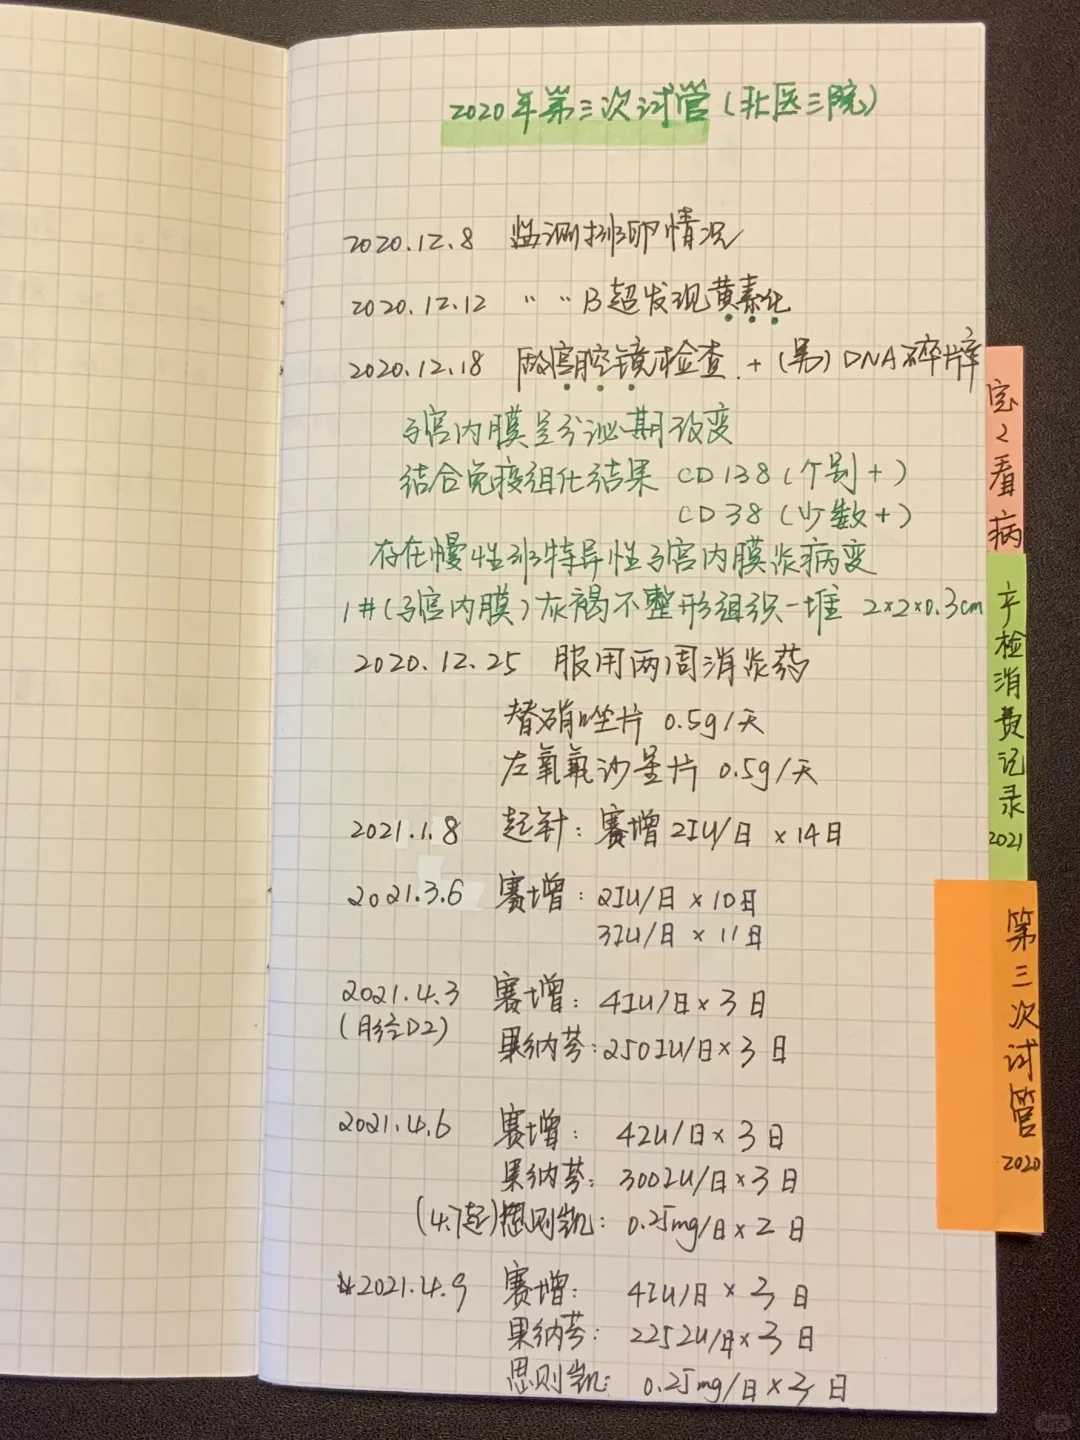 2020年第三次试管(北医三院)
2020.12.8 监测排卵情况
2020.12.12 〃 〃 B超发现黄素化
2020.12.18 做宫腔镜检查 + (男) DNA碎片率
子宫内膜呈分泌期改变
结合免疫组化结果 CD138 (个别+)
CD38 (少数+)
存在慢性非特异性子宫内膜炎病变
1#(子宫内膜)灰褐不整形组织一堆 2×2×0.3cm
2020.12.25 服用两周消炎药
替硝唑片 0.5g/天
左氧氟沙星片 0.5g/天
2021.1.8 起针: 赛增 2IU/日 ×14日
2021.3.6 赛增: 2IU/日 ×10日
3IU/日 ×11日
2021.4.3 赛增: 4IU/日×3日
(月经D2) 果纳芬:250IU/日×3日
2021.4.6 赛增: 4IU/日×3日
果纳芬: 300IU/日×3日
(4.7起)思则凯: 0.25mg/日×2日
2021.4.9 赛增: 4IU/日×3日
果纳芬: 225IU/日×3日
思则凯: 0.25mg/日×3日
宝2看病
产检消费记录
2021
第三次试管
2020